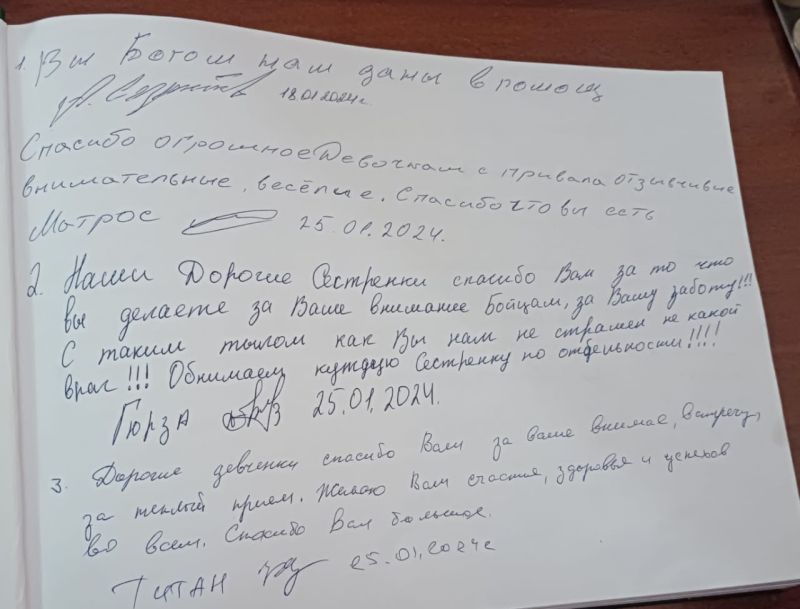 1. Вы Богом нам даны в помощ
18.01.2024г.
Спасибо огромное Девочкам с привала отзывчивые
внимательные, весёлые. Спасибо что вы есть
Матрос 25.01.2024.
2. Наши Дорогие Сестренки спасибо Вам за то что
вы делаете за Ваше внимание Бойцам, за Вашу заботу!!!
С таким тылом как Вы нам не страшен не какой
враг!!! Обнимаем кждую Сестренку по отдельности!!!!
Гюрза 25.01.2024.
3. Дорогие девченки спасибо Вам за ваше внимае, встречу,
за теплый прием. Желаю Вам счастие, здоровья и успехов
во всем. Спасибо Вам большое.
Титан 25.01.2024г